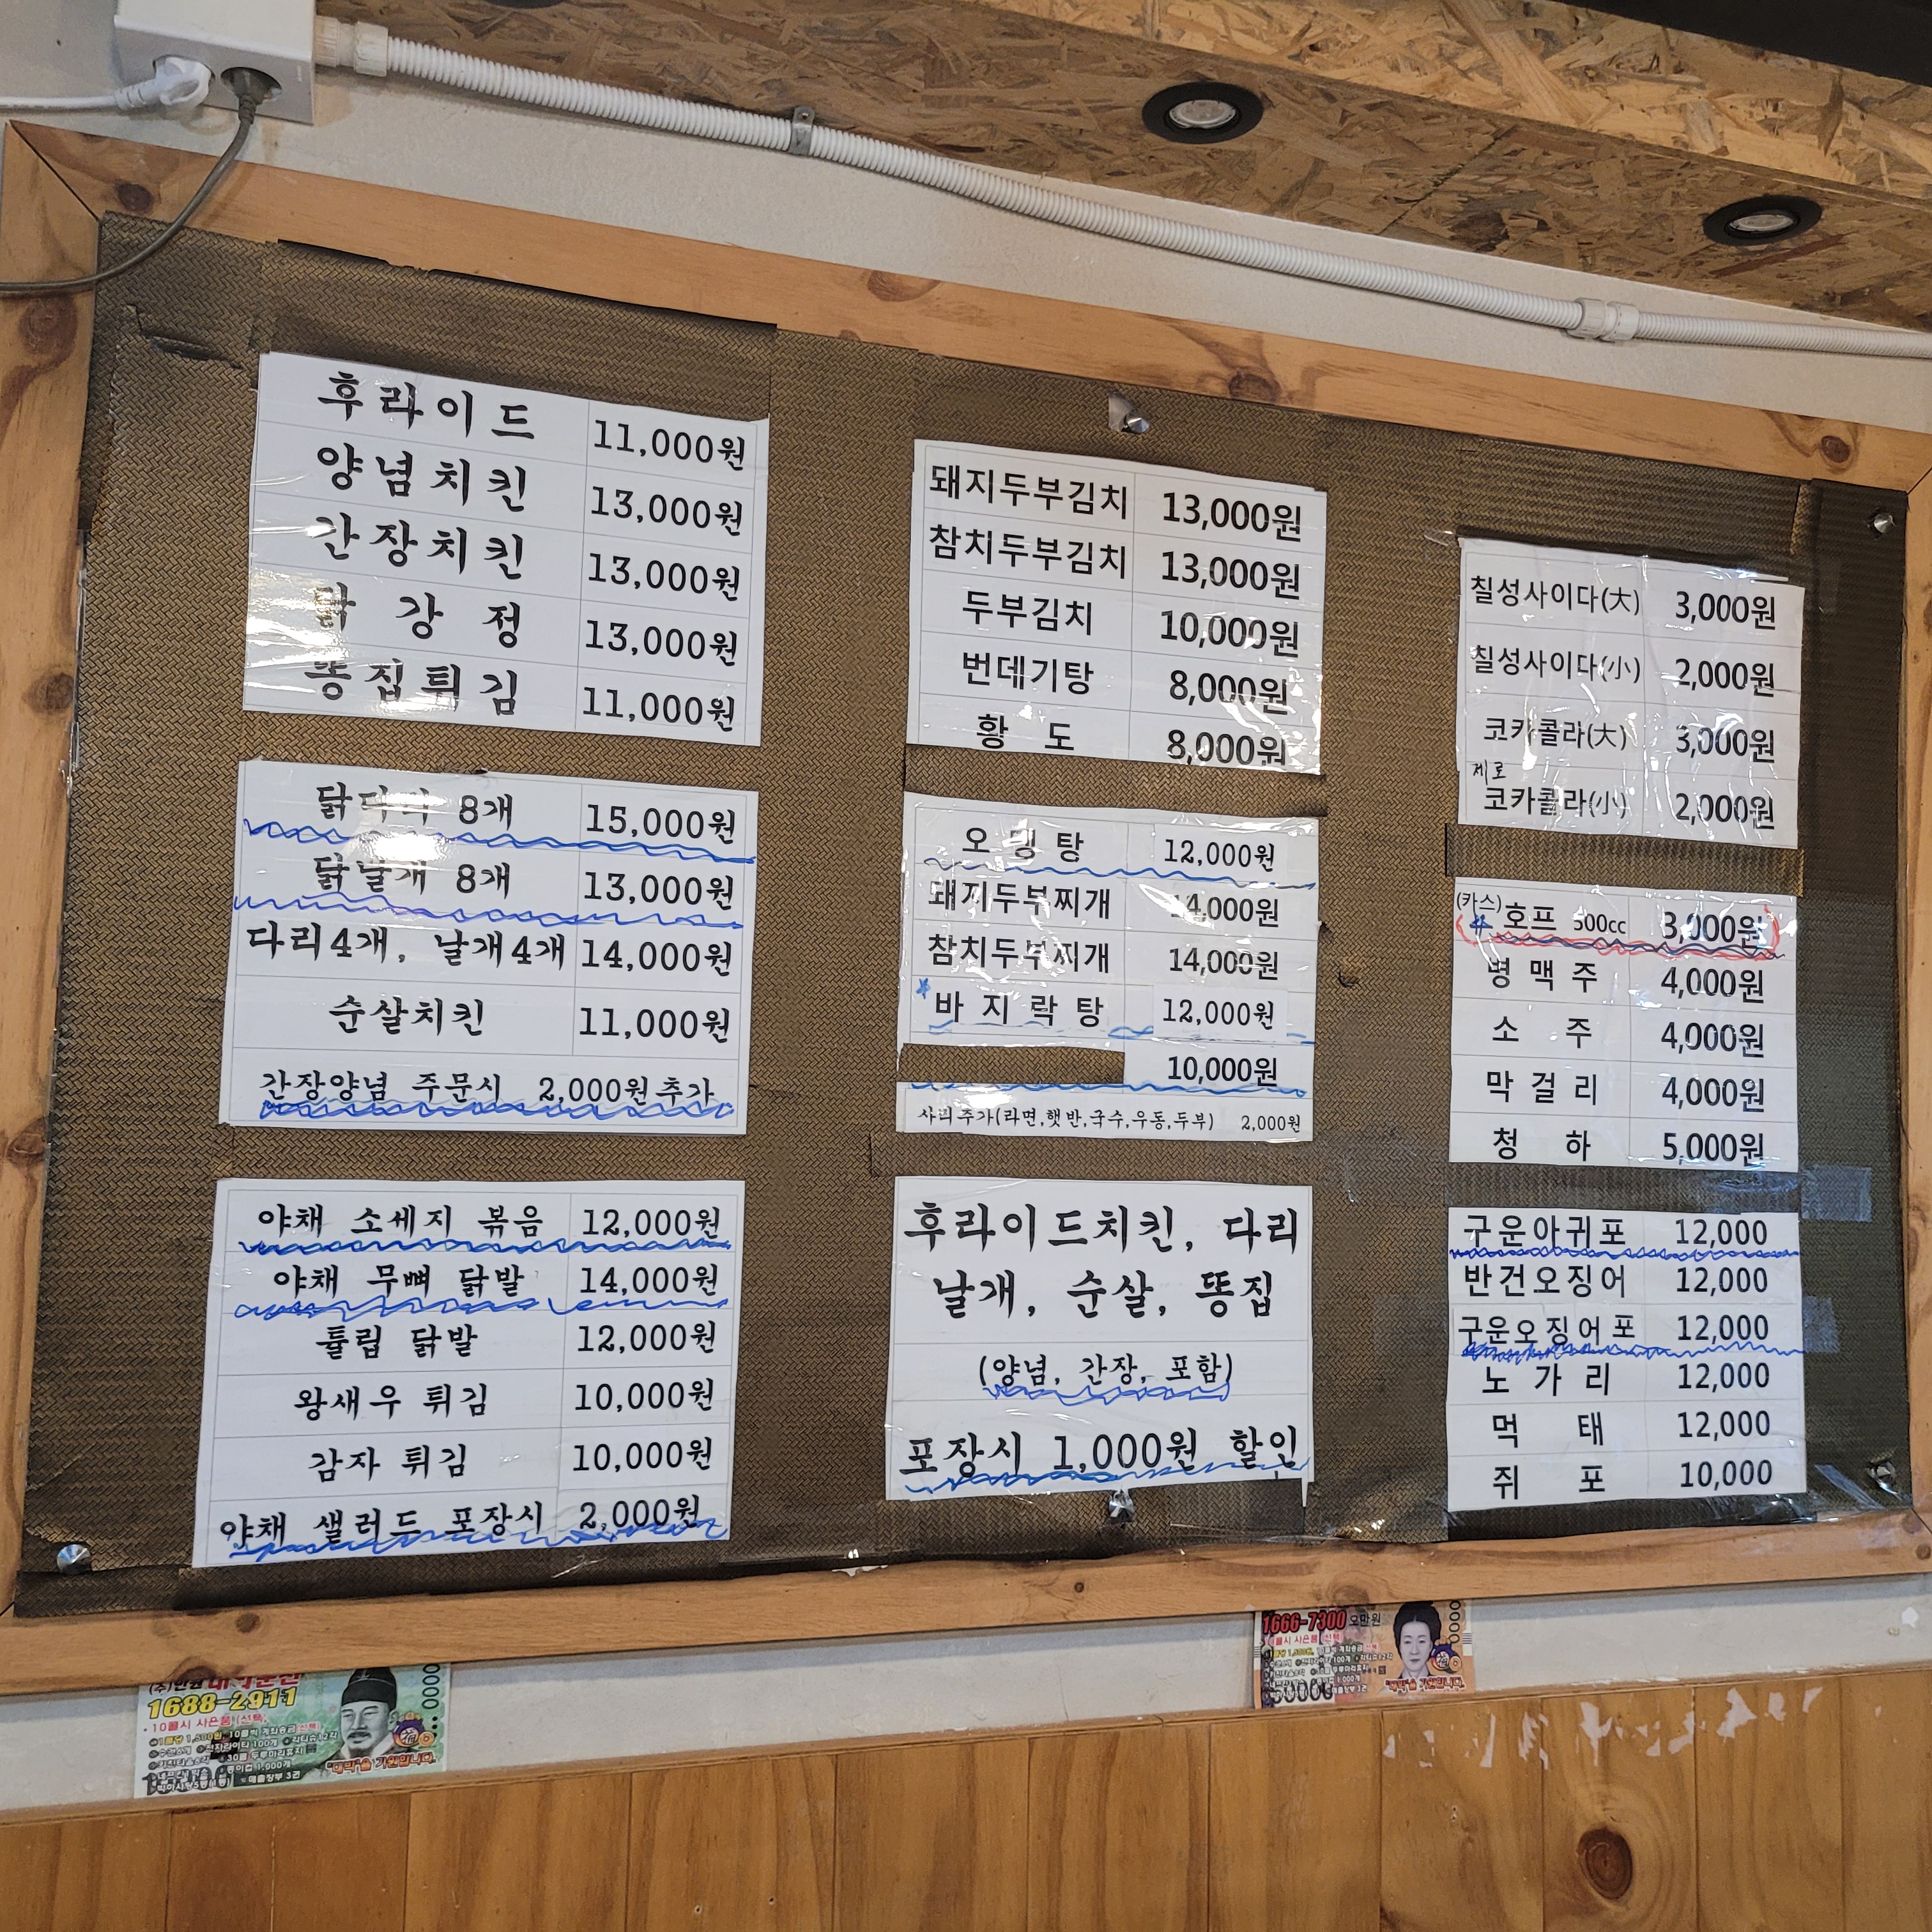 후라이드 11,000원
양념치킨 13,000원
간장치킨 13,000원
닭강정 13,000원
똥집튀김 11,000원
닭다리 8개 15,000원
닭날개 8개 13,000원
다리4개, 날개4개 14,000원
순살치킨 11,000원
간장양념 주문시 2,000원추가
야채 소세지 볶음 12,000원
야채 무뼈 닭발 14,000원
튤립 닭발 12,000원
왕새우 튀김 10,000원
감자 튀김 10,000원
야채 샐러드 포장시 2,000원
돼지두부김치 13,000원
참치두부김치 13,000원
두부김치 10,000원
번데기탕 8,000원
황도 8,000원
오뎅탕 12,000원
돼지두부찌개 14,000원
참치두부찌개 14,000원
바지락탕 12,000원
10,000원
사리추가(라면,햇반,국수,우동,두부) 2,000원
후라이드치킨, 다리
날개, 순살, 똥집
(양념, 간장, 포함)
포장시 1,000원 할인
칠성사이다(大) 3,000원
칠성사이다(小) 2,000원
코카콜라(大) 3,000원
제로
코카콜라(小) 2,000원
(카스) 호프 500cc 3,000원
병맥주 4,000원
소주 4,000원
막걸리 4,000원
청하 5,000원
구운아귀포 12,000
반건오징어 12,000
구운오징어포 12,000
노가리 12,000
먹태 12,000
쥐포 10,000
1688-2911
10콜시 사은품 (선택)
1666-7300 오만원